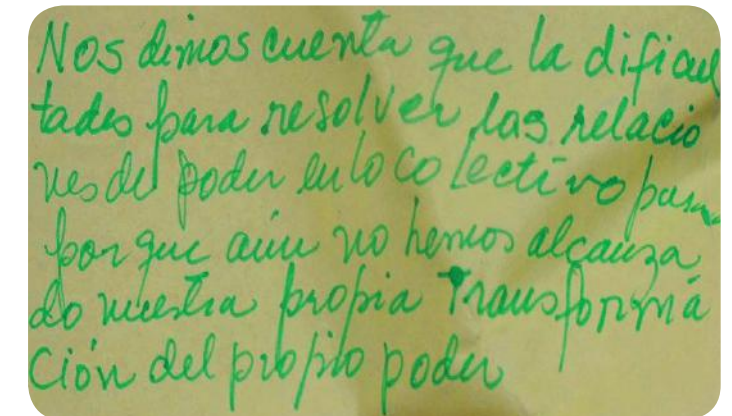 Nos dimos cuenta que la dificul
tades para resolver las relacio
nes del poder en lo colectivo pasa
por que aún no hemos alcanza
do nuestra propia Transforma
ción del propio poder